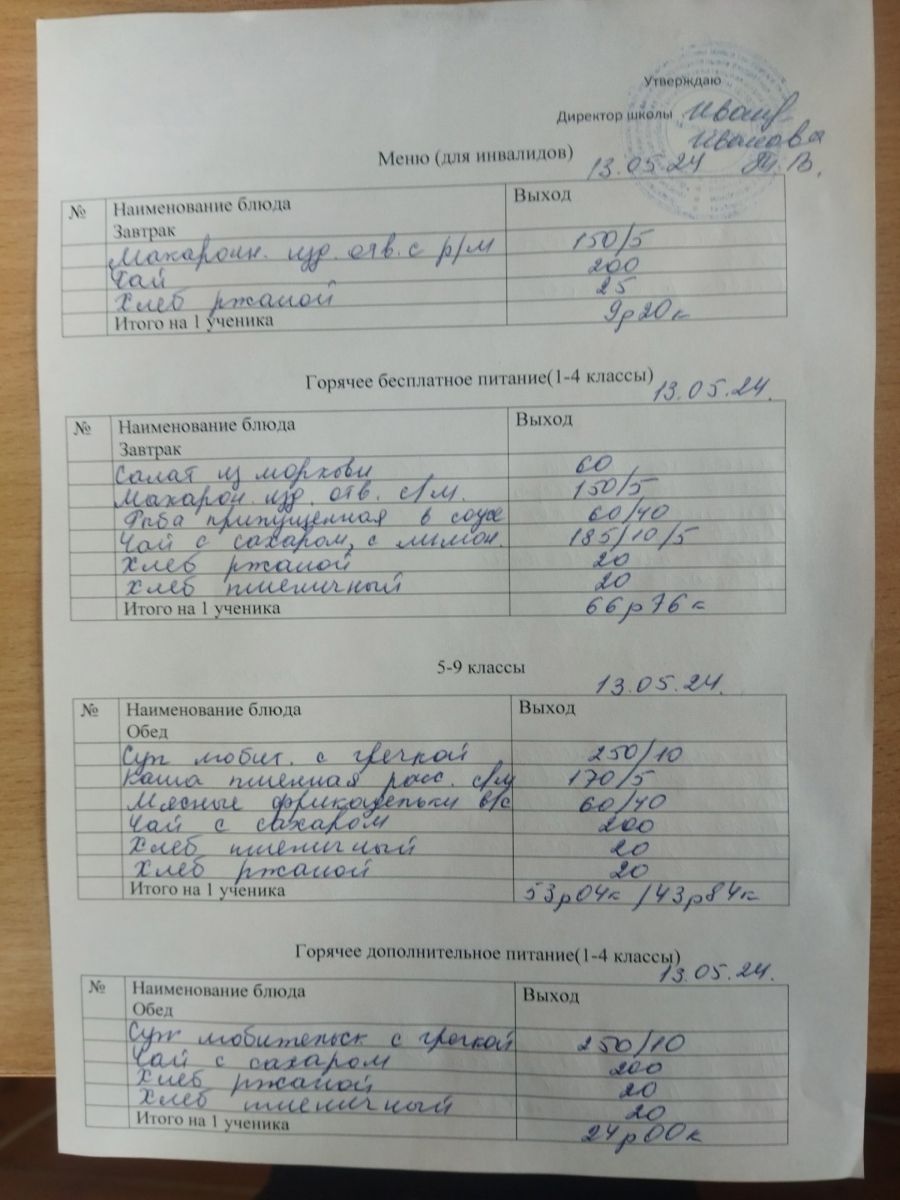 Утверждаю
Директор школы Иванова
Т.В.
Меню (для инвалидов) 13.05.24
№ Наименование блюда Выход
Завтрак
Макарон. изд. отв. с р/м 150/5
Чай 200
Хлеб ржаной 25
Итого на 1 ученика 9р20к
Горячее бесплатное питание(1-4 классы) 13.05.24.
№ Наименование блюда Выход
Завтрак
Салат из моркови 60
Макарон. изд. отв. с/м. 150/5
Рыба припущенная в соусе 60/40
Чай с сахаром, с лимон. 185/10/5
Хлеб ржаной 20
Хлеб пшеничный 20
Итого на 1 ученика 66р76к
5-9 классы 13.05.24.
№ Наименование блюда Выход
Обед
Суп любит. с гречкой 250/10
Каша пшенная расс. с/м 170/5
Мясные фрикадельки в/с 60/40
Чай с сахаром 200
Хлеб пшеничный 20
Хлеб ржаной 20
Итого на 1 ученика 53р04к /43р84к
Горячее дополнительное питание(1-4 классы) 13.05.24.
№ Наименование блюда Выход
Обед
Суп любительск с гречкой 250/10
Чай с сахаром 200
Хлеб ржаной 20
Хлеб пшеничный 20
Итого на 1 ученика 24р00к